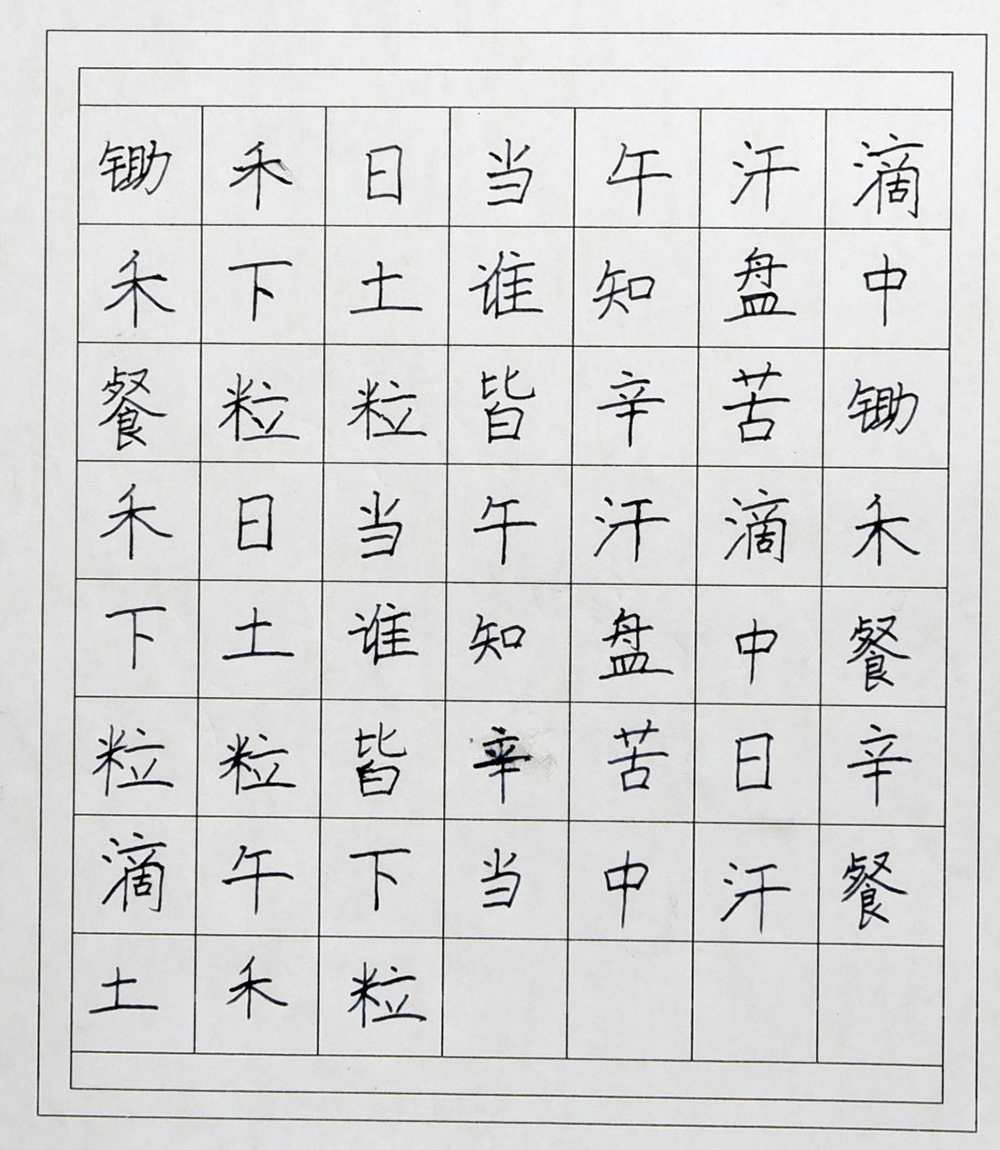 锄禾日当午汗滴
禾下土谁知盘中
餐粒粒皆辛苦锄
禾日当午汗滴禾
下土谁知盘中餐
粒粒皆辛苦日辛
滴午下当中汗餐
土禾粒